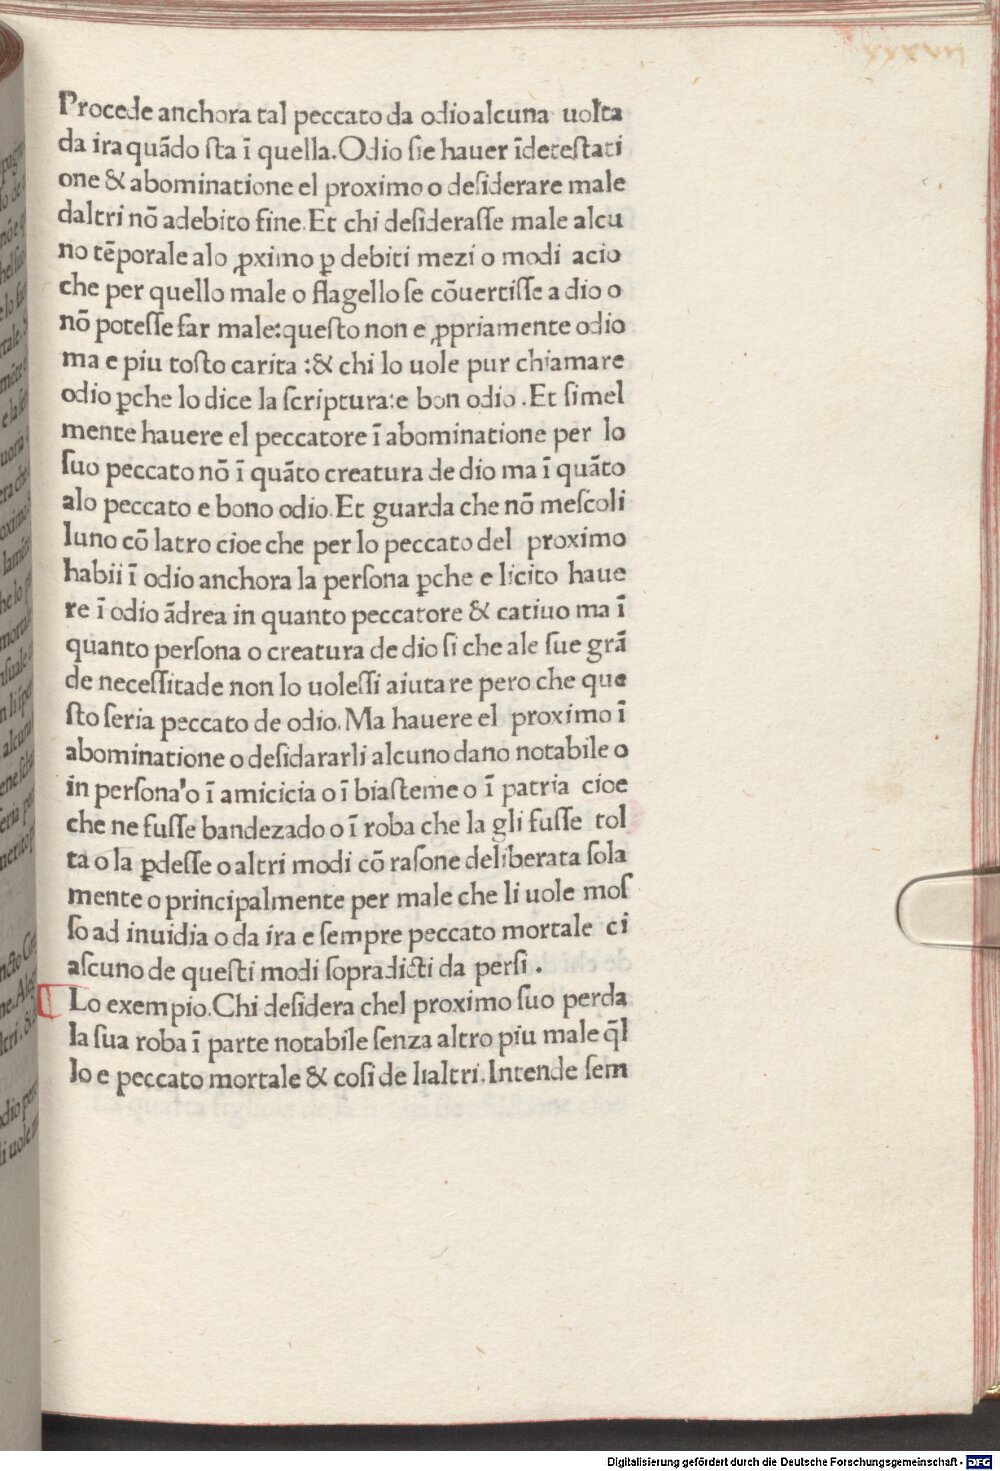 xxxvii
Procede anchora tal peccato da odio alcuna uolta
da ira quãdo ſta ĩ quella. Odio ſie hauer ĩdeteſtati
one & abominatione el proximo o deſiderare male
daltri nõ adebito fine. Et chi deſideraſſe male alcu
no tẽporale alo ꝓximo ꝑ debiti mezi o modi acio
che per quello male o flagello ſe cõuertiſſe a dio o
nõ poteſſe far male: queſto non e ꝓpriamente odio
ma e piu toſto carita : & chi lo uole pur chiamare
odio ꝑche lo dice la ſcriptura: e bon odio . Et ſimel
mente hauere el peccatore ĩ abominatione per lo
ſuo peccato nõ ĩ quãto creatura de dio ma ĩ quãto
alo peccato e bono odio. Et guarda che nõ meſcoli
luno cõ latro cioe che per lo peccato del proximo
habii ĩ odio anchora la perſona ꝑche e licito haue
re ĩ odio ãdrea in quanto peccatore & catiuo ma ĩ
quanto perſona o creatura de dio ſi che ale ſue grã
de neceſſitade non lo uoleſſi aiutare pero che que
ſto ſeria peccato de odio. Ma hauere el proximo ĩ
abominatione o deſidararli alcuno dano notabile o
in perſona'o ĩ amicicia o ĩ biaſteme o ĩ patria cioe
che ne fuſſe bandezado o ĩ roba che la gli fuſſe tol
ta o la ꝑdeſſe o altri modi cõ raſone deliberata ſola
mente o principalmente per male che li uole moſ
ſo ad inuidia o da ira e ſempre peccato mortale ci
aſcuno de queſti modi ſopradicti da perſi .
Lo exempio. Chi deſidera chel proximo ſuo perda
la ſua roba ĩ parte notabile ſenza altro piu male q̃l
lo e peccato mortale & coſi de lialtri. Intende ſem
Digitalisierung gefördert durch die Deutsche Forschungsgemeinschaft - DFG